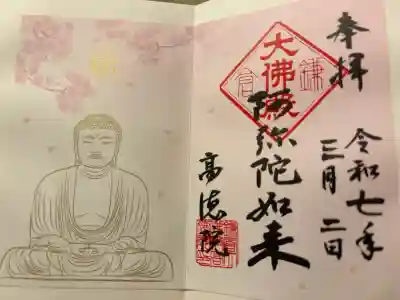 奉拝
令和七年
三月二日
鎌倉
大佛殿
阿弥陀如来
高徳院